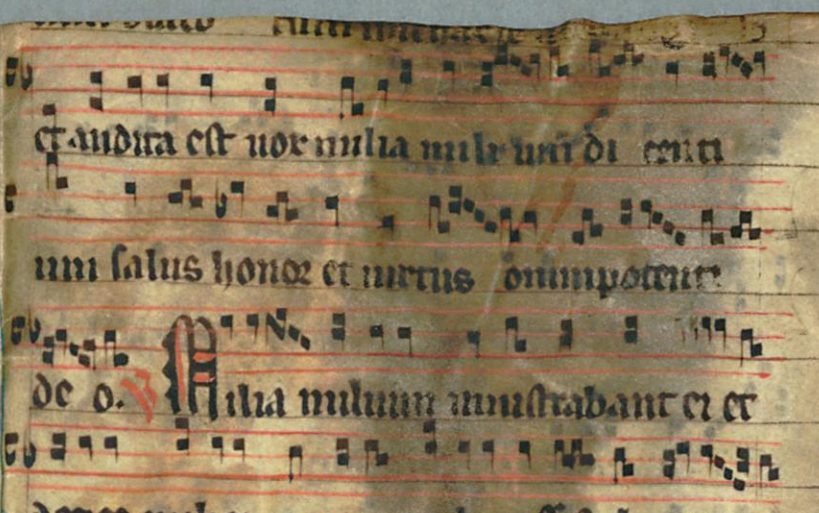 et audita est uox milia milium di centi
um salus honor et uirtus omnipotenti
deo. V Milia milium ministrabant ei et